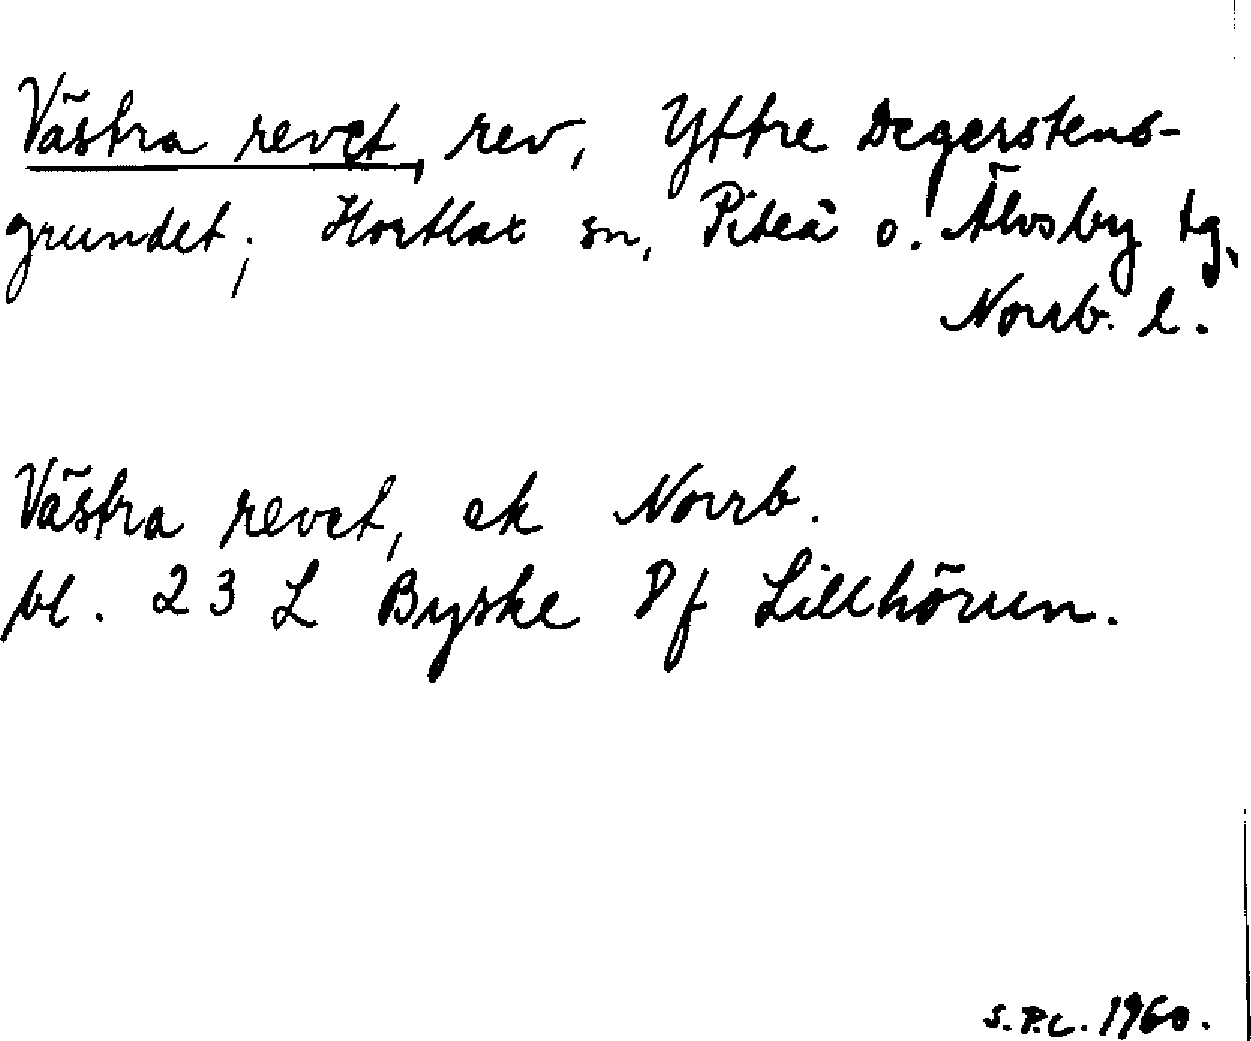 Västra revet, rev, Yttre Degerstens-
grundet; Hortlax sn, Piteå o. Älvsby tg,
Norrb. l.
Västra revet, ek Norrb.
bl. 23 L Byske Df Lillhörun.
S.P.C. 1960.